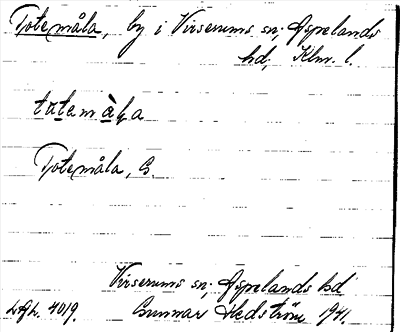 Totemåla, by i Virserums sn; Aspelands
hd, Klm. l.
totemåla
Totemåla, G.
Virserums sn; Aspelands hd
Lgh. 4019. Gunnar Hedström 1941